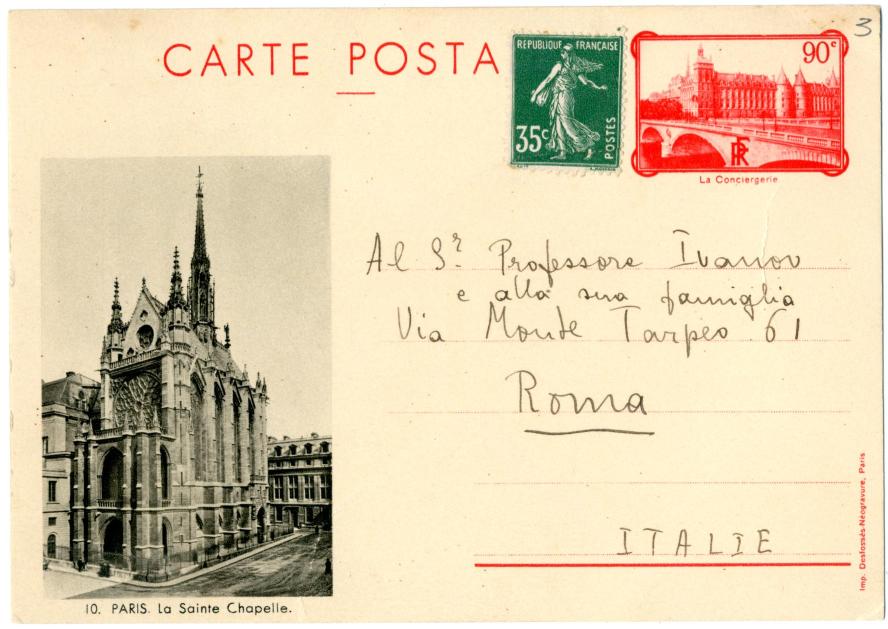 3
CARTE POSTA
REPUBLIQUE FRANÇAISE
35c
POSTES
90c
RF
La Conciergerie
Al Sr. Professore Ivanov
e alla sua famiglia
Via Monte Tarpeo 61
Roma
ITALIE
10. PARIS. La Sainte Chapelle.
Imp. Desfossés-Néogravure, Paris